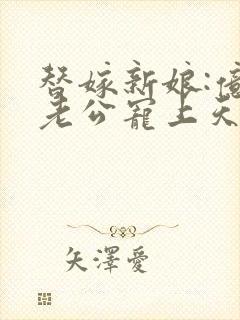 替嫁新娘:億
老公寵上天
矢澤愛